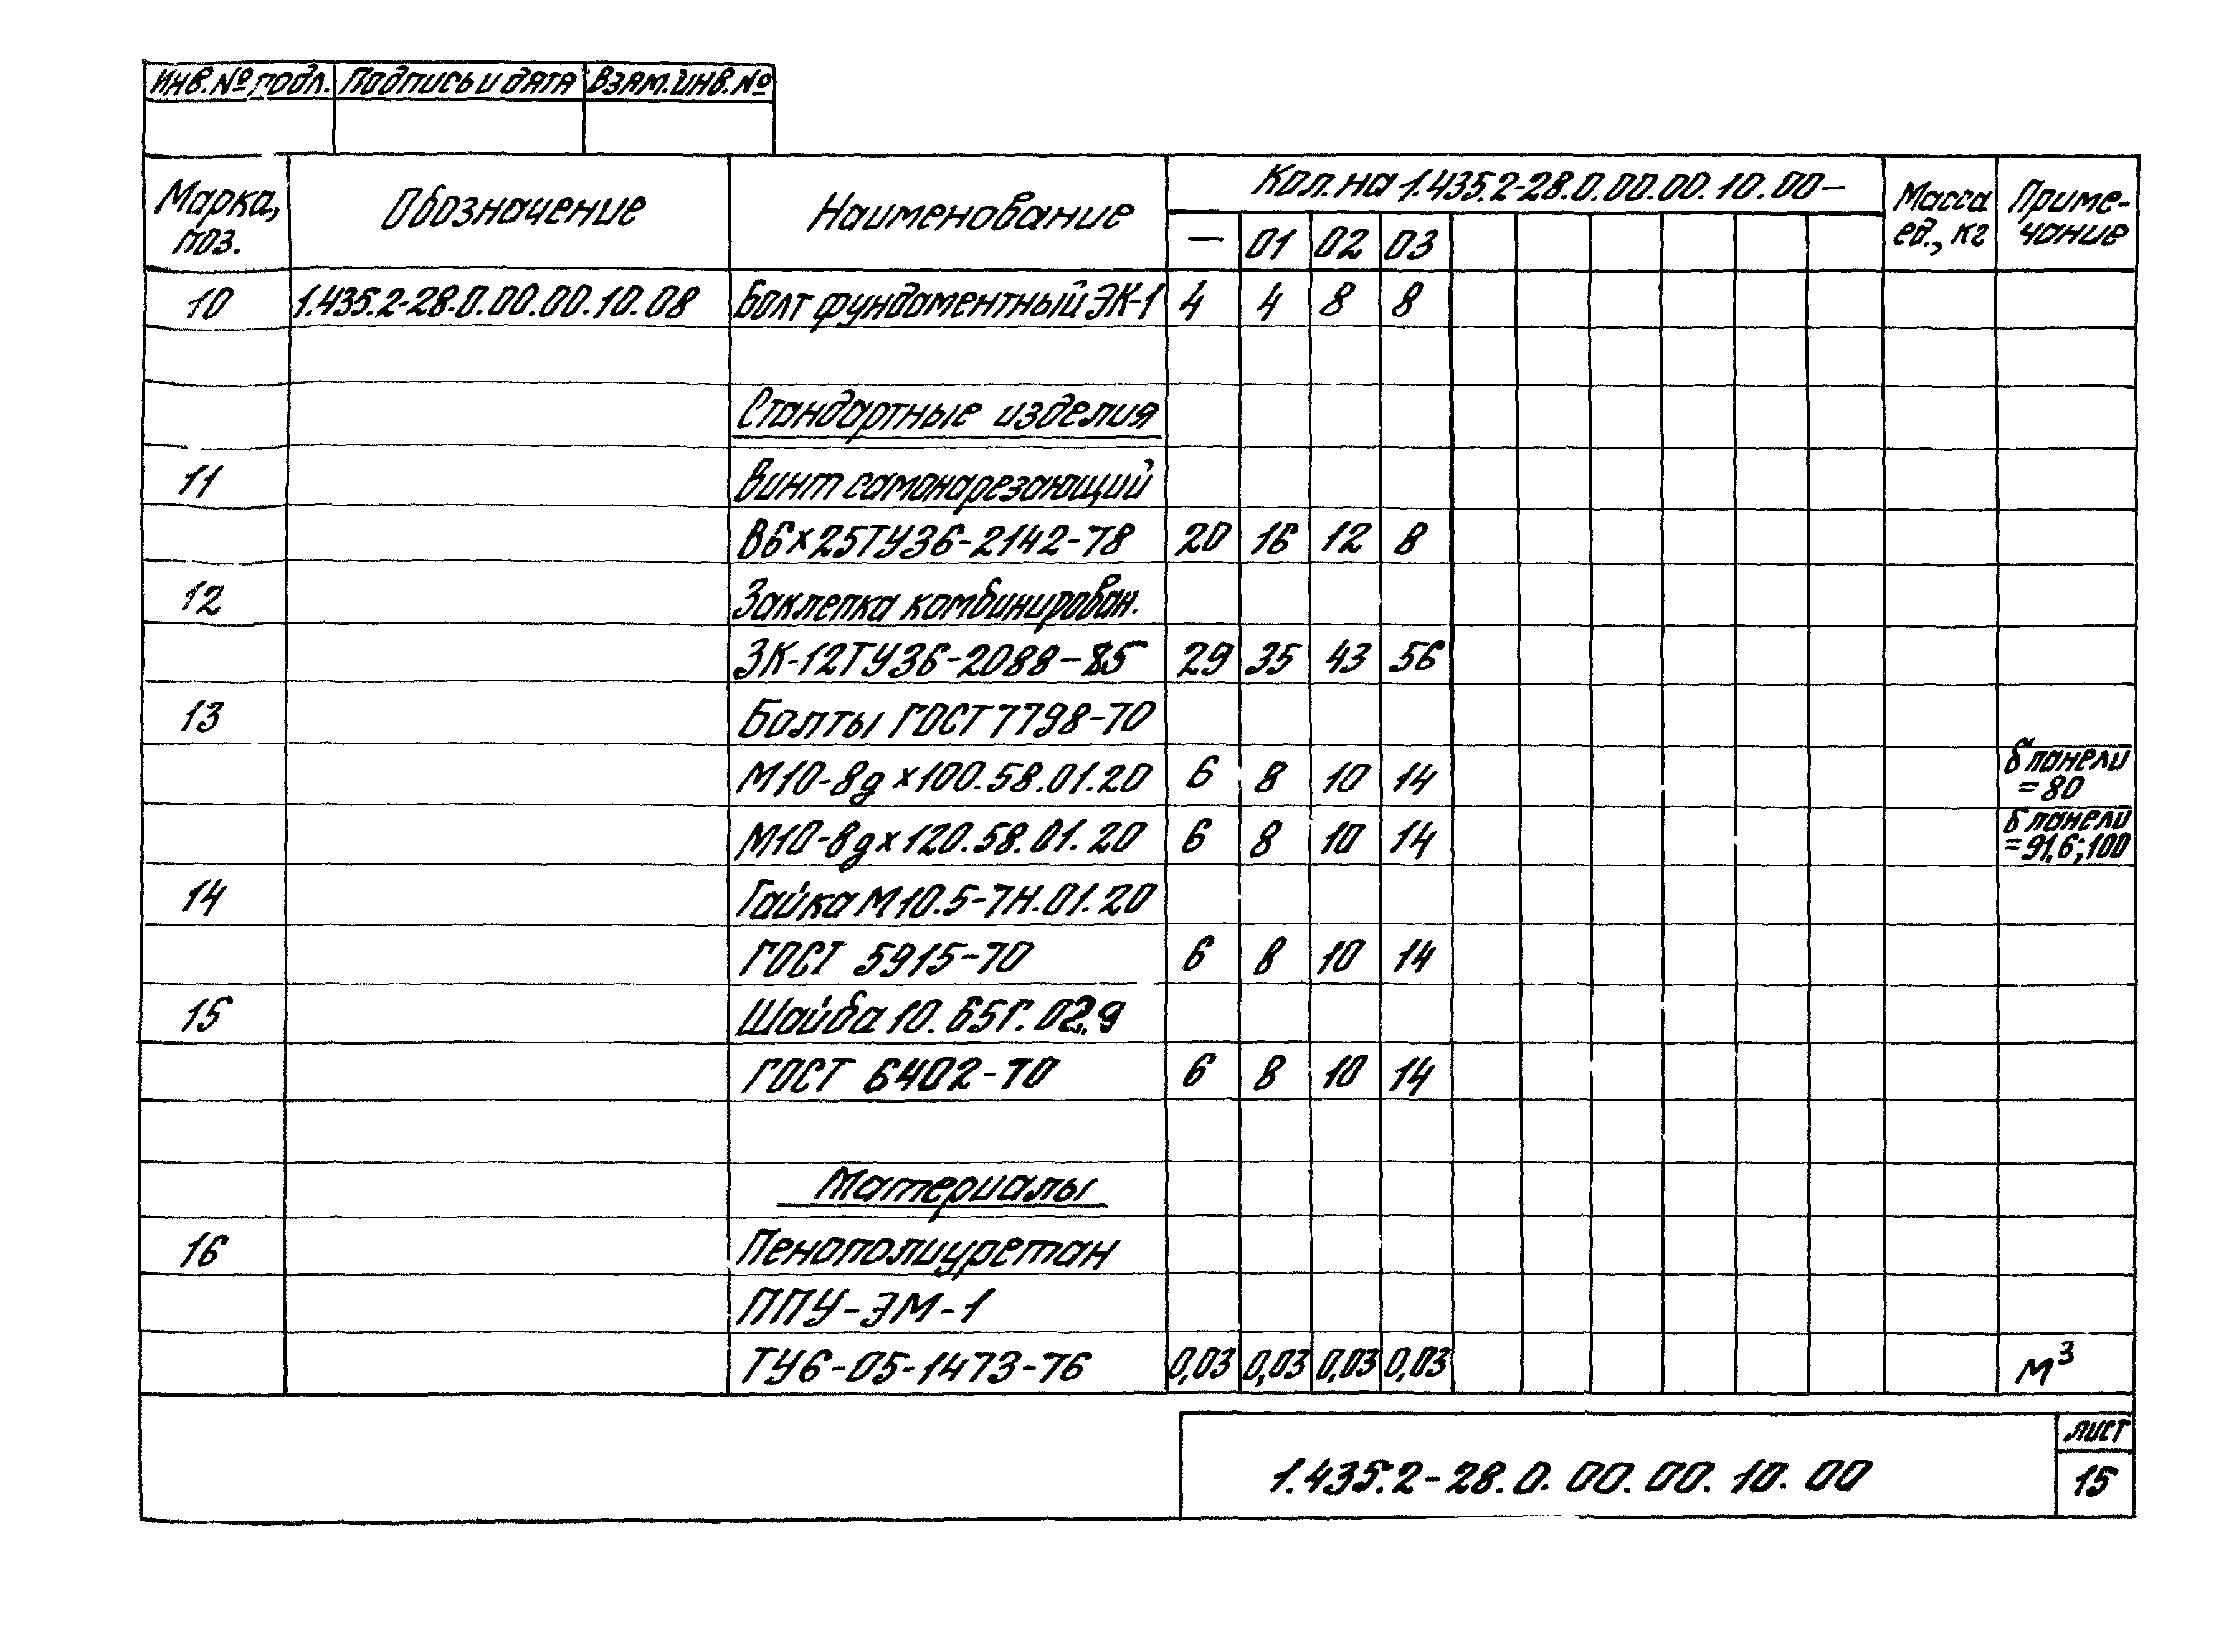 Инв.№ подл. Подпись и дата Взам.инв.№
Марка, поз. Обозначение Наименование Кол. на 1.435.2-28.0.00.00.10.00— Масса ед., кг Приме-чание
— 01 02 03
10 1.435.2-28.0.00.00.10.08 Болт фундаментный ЭК-1 4 4 8 8
Стандартные изделия
11 Винт самонарезающий
В6х25ТУ36-2142-78 20 16 12 8
12 Заклепка комбинирован.
ЗК-12ТУ36-2088-85 29 35 43 56
13 Болты ГОСТ 7798-70
М10-8gх100.58.01.20 6 8 10 14 δ панели =80
М10-8gх120.58.01.20 6 8 10 14 δ панели =91,6;100
14 Гайка М10.5-7Н.01.20
ГОСТ 5915-70 6 8 10 14
15 Шайба 10.65Г.029
ГОСТ 6402-70 6 8 10 14
Материалы
16 Пенополиуретан
ППУ-ЭМ-1
ТУ6-05-1473-76 0,03 0,03 0,03 0,03 м³
1.435.2-28.0.00.00.10.00
лист
15